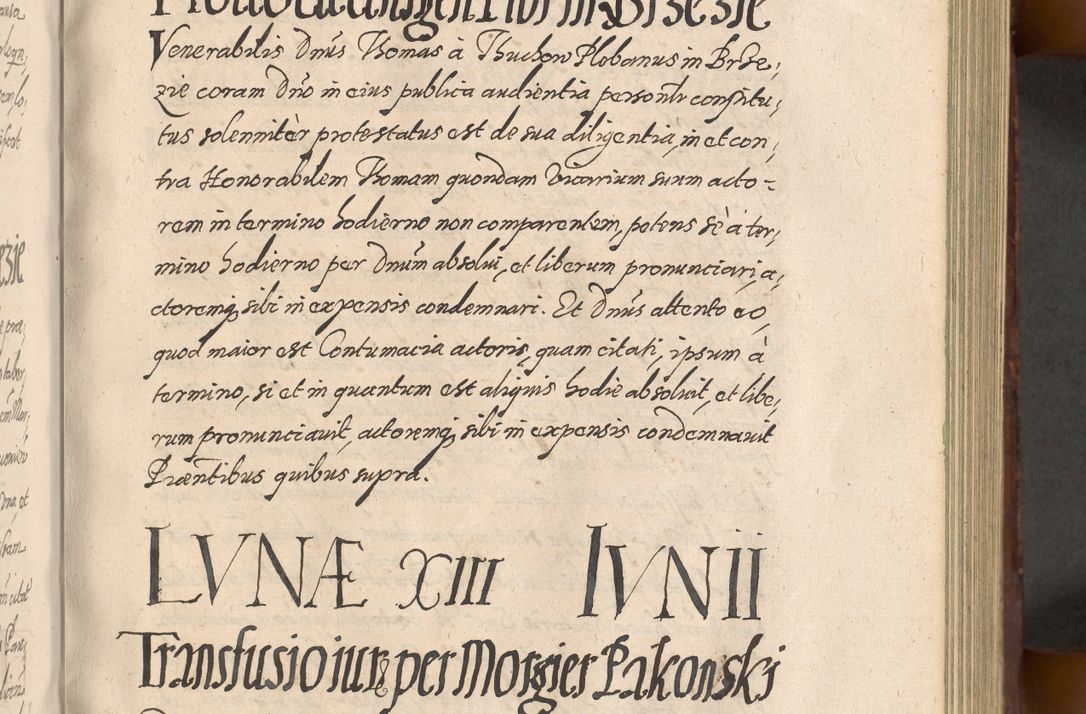 Venerabilis Dnús Thomas à Thuchow Plobanus in Brze,
zie coram Dnó in eius publica audientia personlr constitu,
tus solennitèr protestatus est de sua diligentia, in et con,
tra Honorabilem Thomam quondam Vicarium suum acto-
rem in termino hodierno non comparentem, petens se à ter,
mino hodierno per Dnúm absolui, et liberum pronunciari, a,
ctoremq, sibi in expensis condemnari. Et Dnús attento eo,
quod maior est Contumacia actoris, quam citati, ipsum à
termino, si et in quantum est aliquis hodie absoluit, et libe,
rum pronunciauit, actoremq, sibi in expensis condemnauit
Præntibus quibus supra.
LVNÆ XIII IVNII
Transfusio iur per Morgier Pakonski